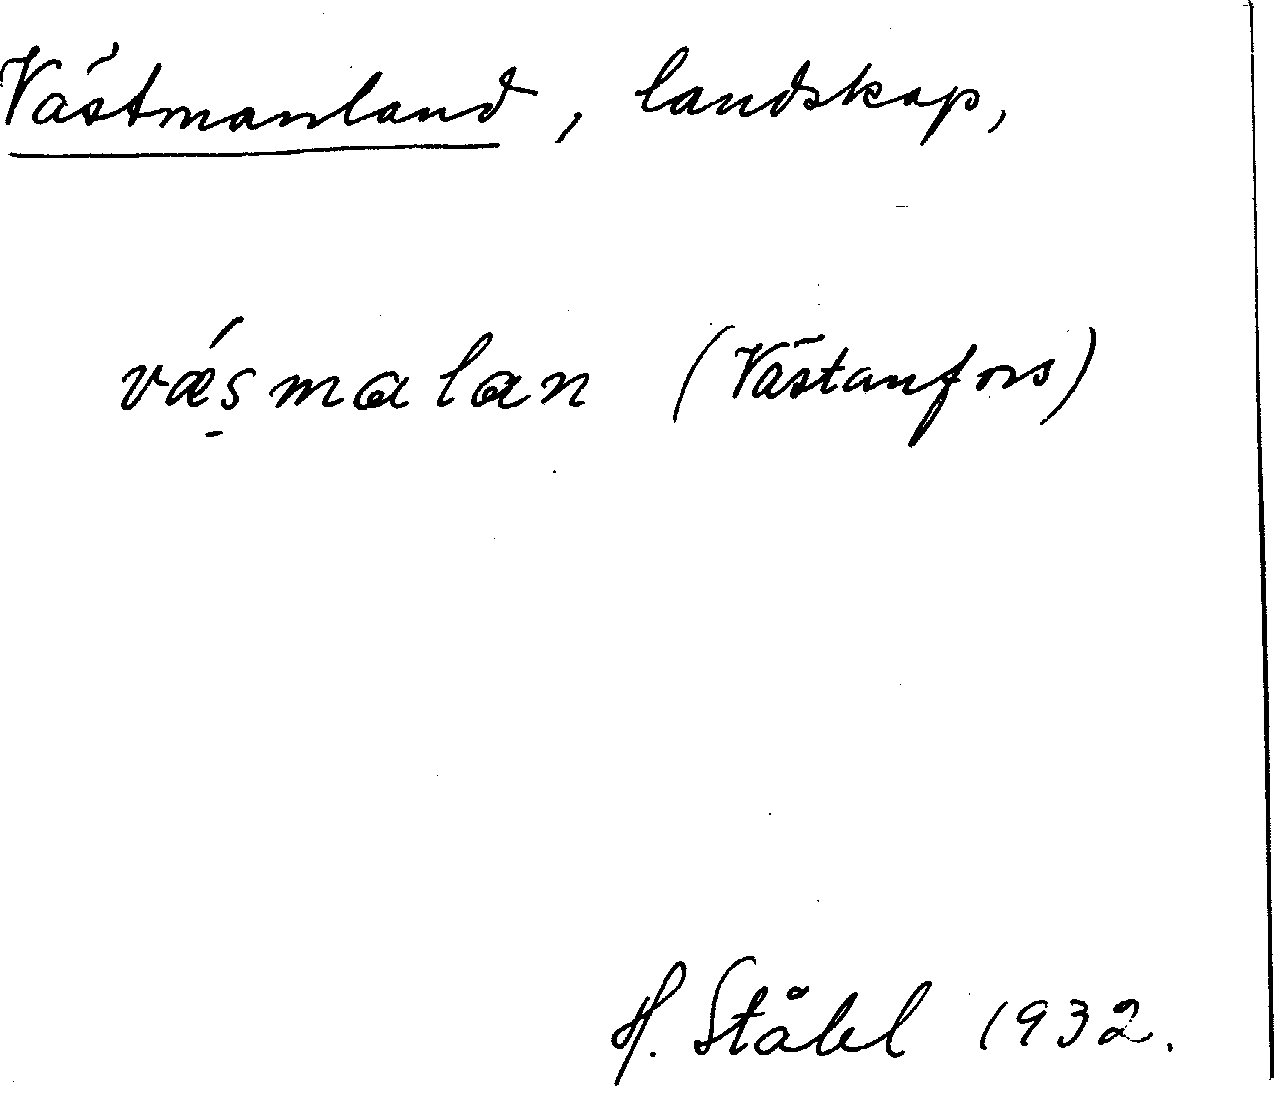 Västmanland, landskap,
væ̀smalan (Västanfors)
H. Ståhl 1932.